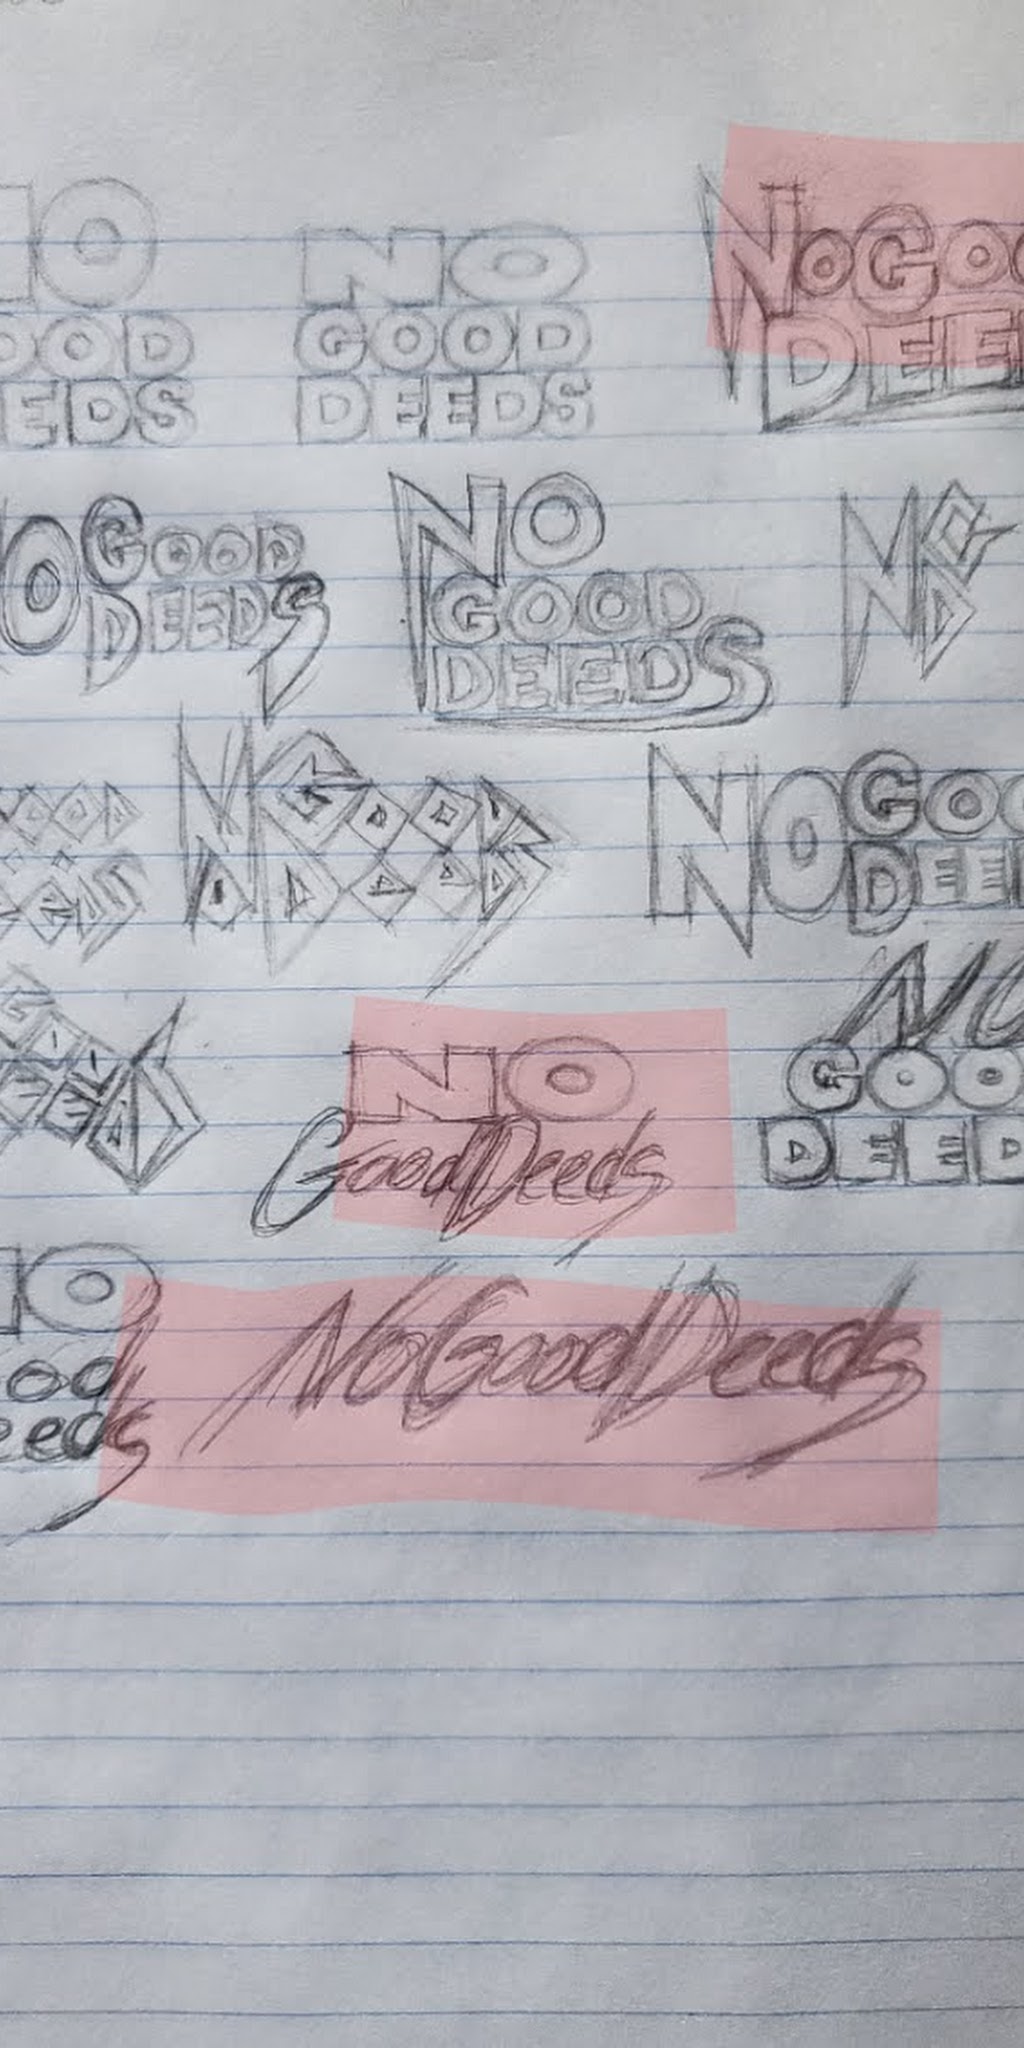 NO
OOD
EEDS
NO
GOOD
DEEDS
NoGoo
DEE
O Good
DEEDS
NO
GOOD
DEEDS
NO GOO
DEE
NO
GoodDeeds
NO
GOO
DEED
O
ood
eeds
NoGoodDeeds